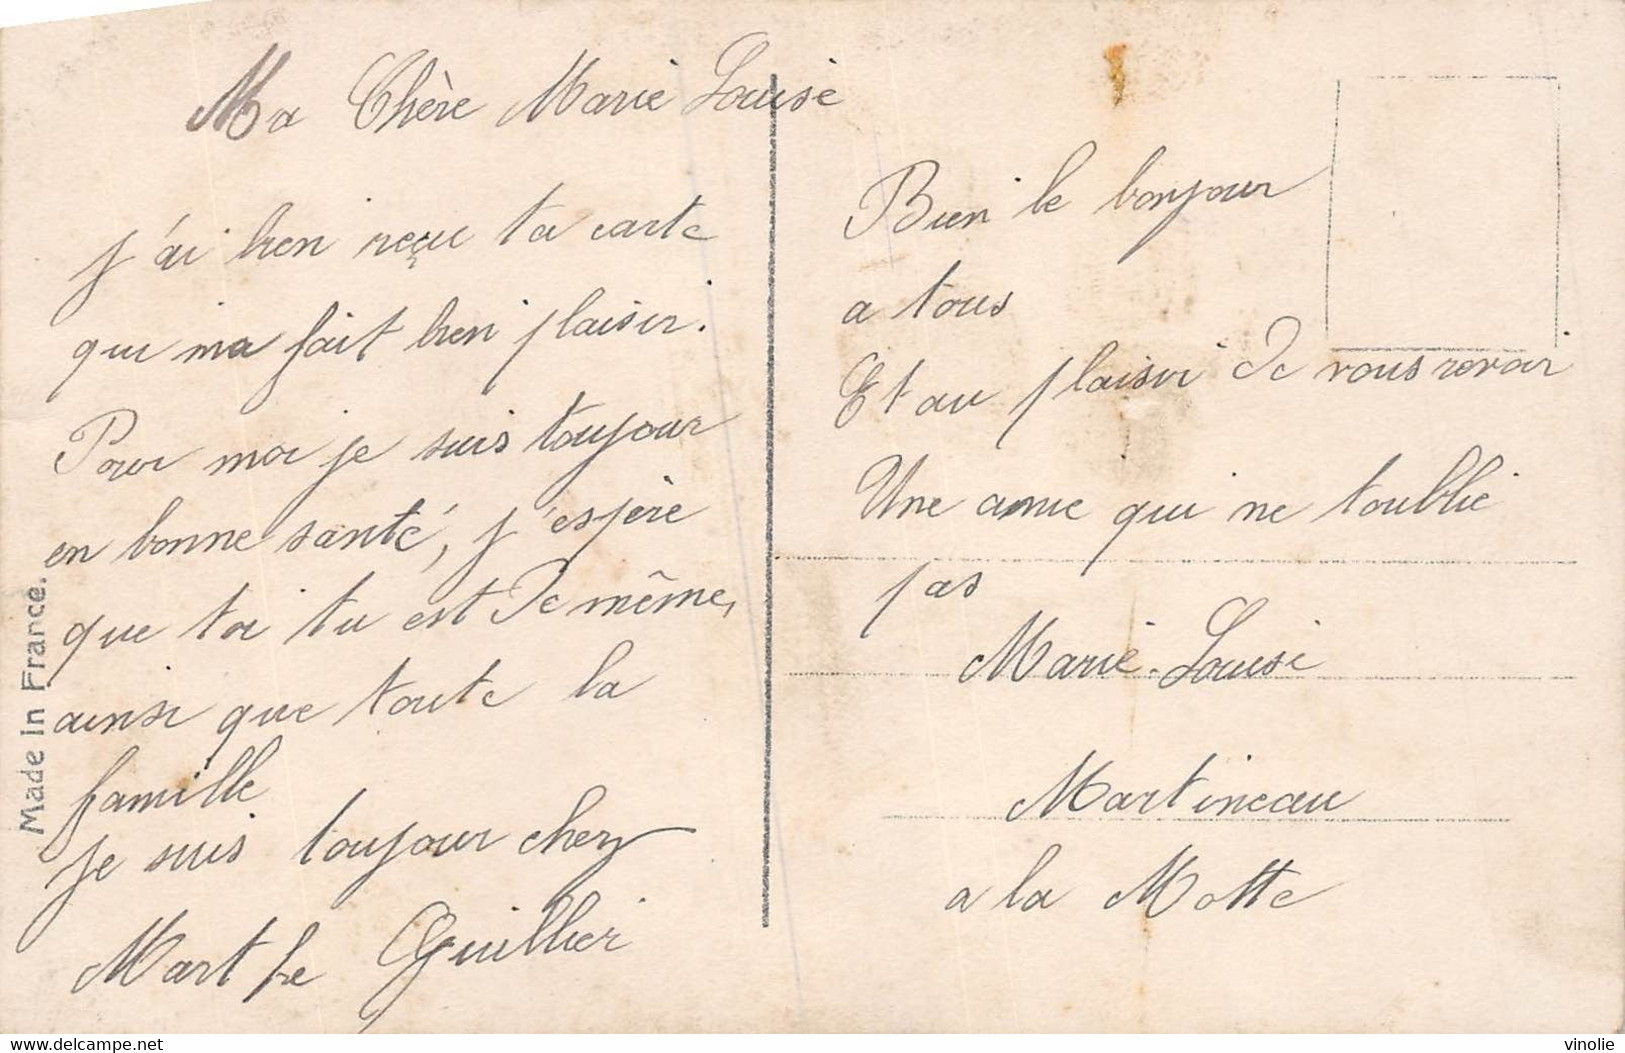 Ma Chère Marie Louise
j'ai bien reçue ta carte
qui ma fait bien plaisir.
Pour moi je suis toujour
en bonne santé, j'espère
que toi tu est De même,
ainsi que toute la
famille
je suis toujour chez
Mart he Guillier
Bien le bonjour
a tous
Et au plaisir De vous revoir
Une amie qui ne toublie
pas
Marie-Louise
Martineau
a la Motte
Made in France.
www.delcampe.net
vinolie